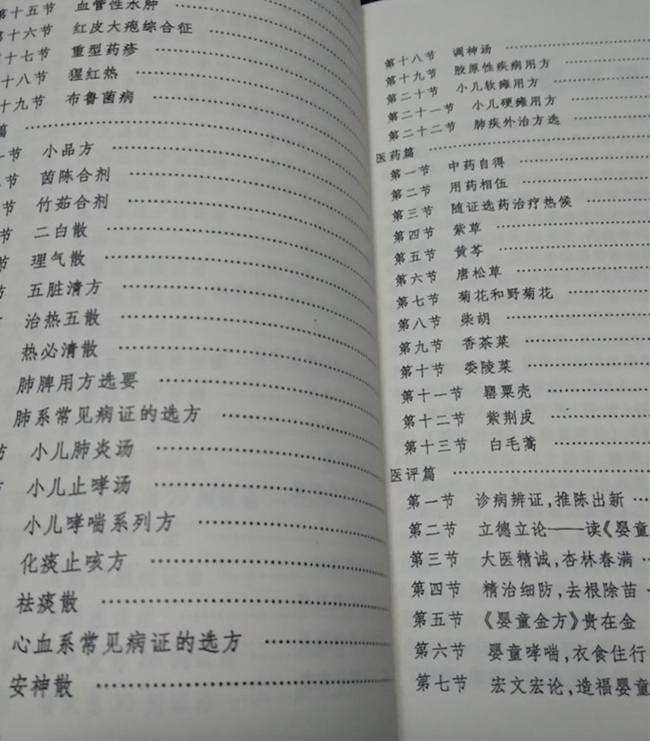 第十五节 血管性水肿
第十六节 红皮大疱综合征
第十七节 重型药疹
十八节 猩红热
十九节 布鲁菌病
篇
一节 小品方
节 茵陈合剂
节 竹茹合剂
节 二白散
节 理气散
节 五脏清方
治热五散
热必清散
肺脾用方选要
肺系常见病证的选方
节 小儿肺炎汤
节 小儿止哮汤
小儿哮喘系列方
化痰止咳方
祛痰散
心血系常见病证的选方
安神散
第十八节 调神汤
第十九节 胶原性疾病用方
第二十节 小儿软瘫用方
第二十一节 小儿硬瘫用方
第二十二节 肺疾外治方选
医药篇
第一节 中药自得
第二节 用药相伍
第三节 随证选药治疗热候
第四节 紫草
第五节 黄芩
第六节 唐松草
第七节 菊花和野菊花
第八节 柴胡
第九节 香茶菜
第十节 委陵菜
第十一节 罂粟壳
第十二节 紫荆皮
第十三节 白毛蒿
医评篇
第一节 诊病辨证,推陈出新
第二节 立德立论——读《婴童
第三节 大医精诚,杏林春满
第四节 精治细防,去根除苗
第五节 《婴童金方》贵在金
第六节 婴童哮喘,衣食住行
第七节 宏文宏论,造福婴童